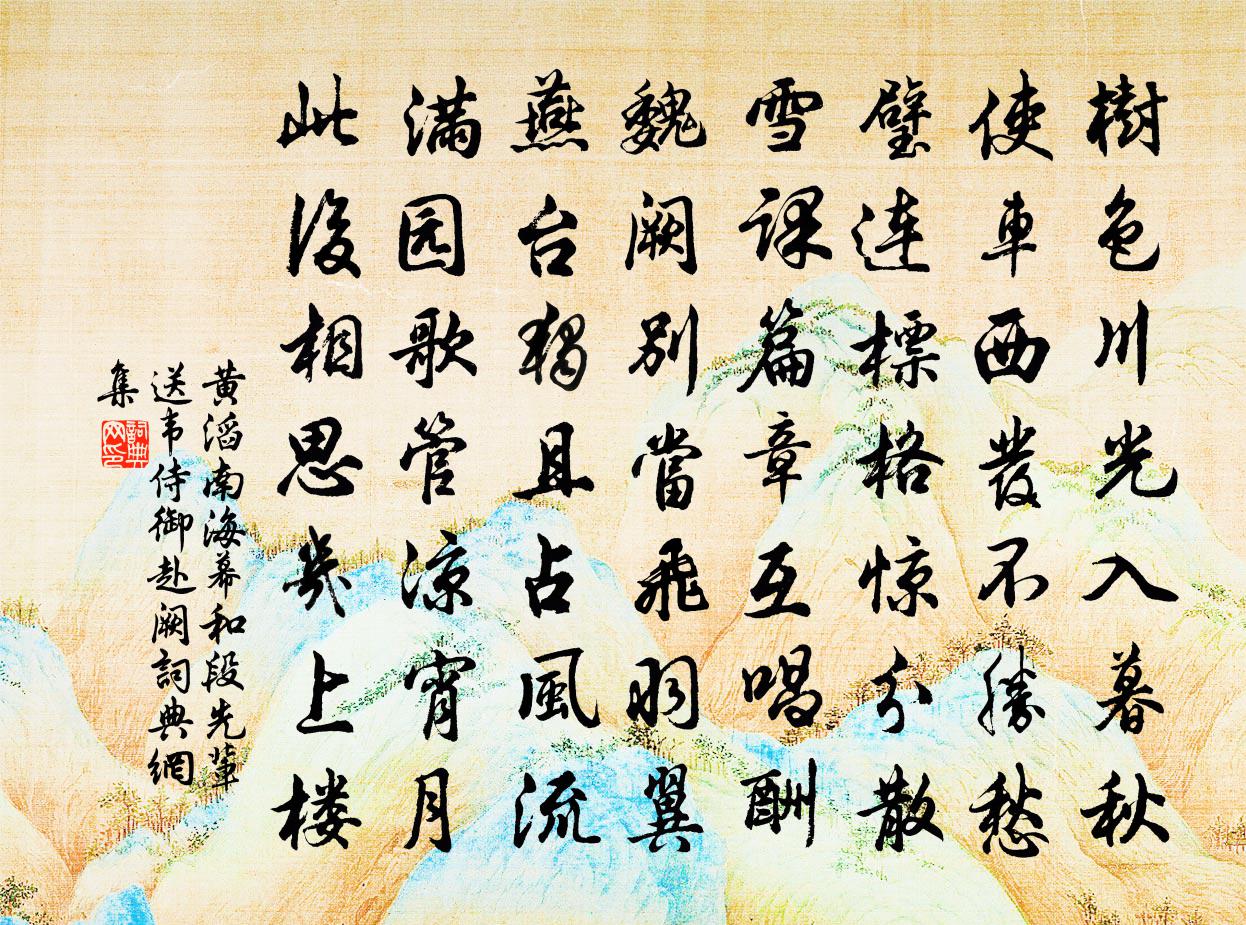 樹色川光入暮秋
使車西發不勝愁
璧連標格惊分散
雪課篇章互唱酬
魏阙別當飛羽翼
燕台独且占風流
满园歌管凉宵月
此後相思幾上楼
黄滔南海幕和段先輩
送韦侍御赴阙詞典網
集
詞典
网印